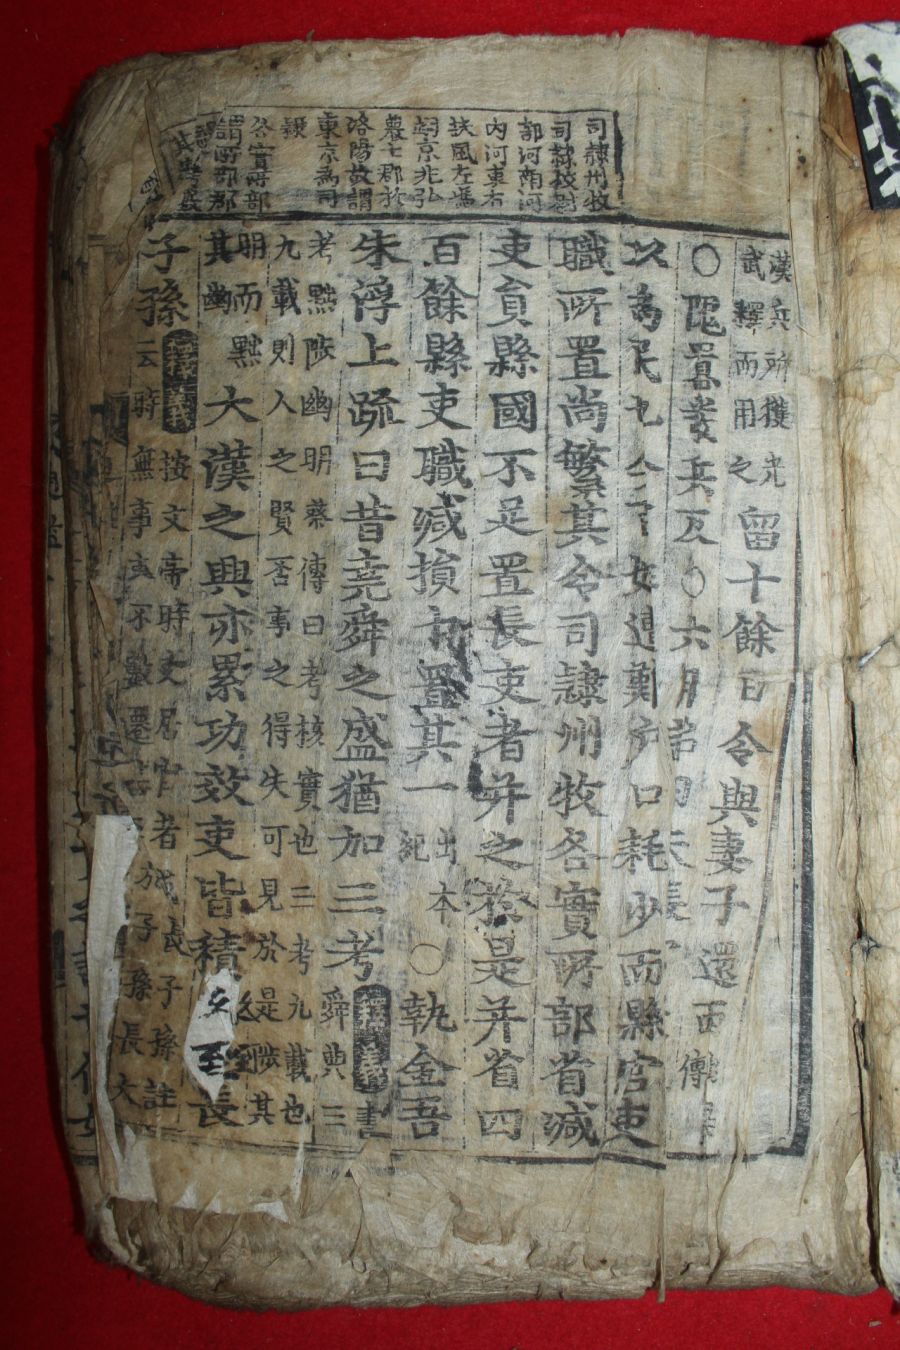 司隷州牧
司隷校尉
部河南河
內河東右
扶風左馮
翊京兆弘
農七郡於
洛陽故謂
東京爲司
隷
漢兵所獲光
武釋而用之
留十餘日令與妻子還西
○隗囂發兵反○六月詔曰夫張
以爲民也今百姓遭難戶口耗少而縣官吏
職所置尚繁其令司隷州牧各實所部省減
吏員縣國不足置長吏者幷之於是幷省四
百餘縣吏職減損十置其一
出本
紀
○執金吾
朱浮上疏曰昔堯舜之盛猶加三考
舜典三
考黜陟幽明蔡傳曰考核實也三考九載也
九載則人之賢否事之得失可見於是陟其
明而黜
其幽
大漢之興亦累功效吏皆積久至長
子孫
按文帝時文居官者或長子孫註
云時無事吏不數遷 於子孫長大